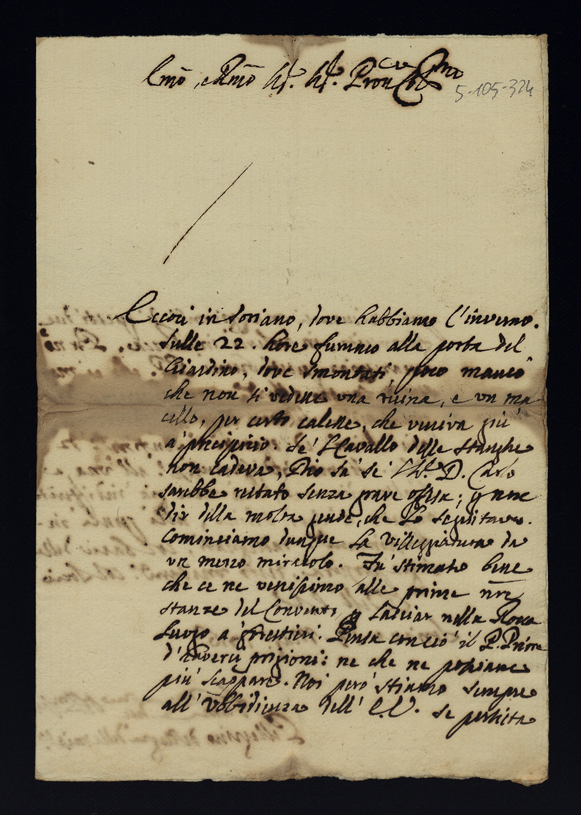 Emo, e Rmo Sig.r Sig.r Pron Col.mo
5-105-324
Eccoci in Soriano, dove habbiamo l'inverno.
Sulle 22. hore fummo alla porta del
Giardino, dove smontati, poco mancò
che non si vedesse una ruina, e un ma
cello, per certo calesse, che veniva giù
a precipizio. Se 'l Cavallo delle Stanghe
non cadeva, Dio sà se D. Carlo
sarebbe restato senza grave offesa; 
dir della molta gente, che lo seguitava.
Cominciamo dunque la villeggiatura da
un mezzo miracolo. Fu stimato bene
che ce ne venissimo alle prime nre
stanze del Convento, lasciar nella Rocca
luogo a' forestieri. Pensa con ciò il P. Priore
d'haverci prigioni: ne che ne possiamo
più scappare. Noi però stiamo sempre
all'Ubbidienza dell'E.V. se persista